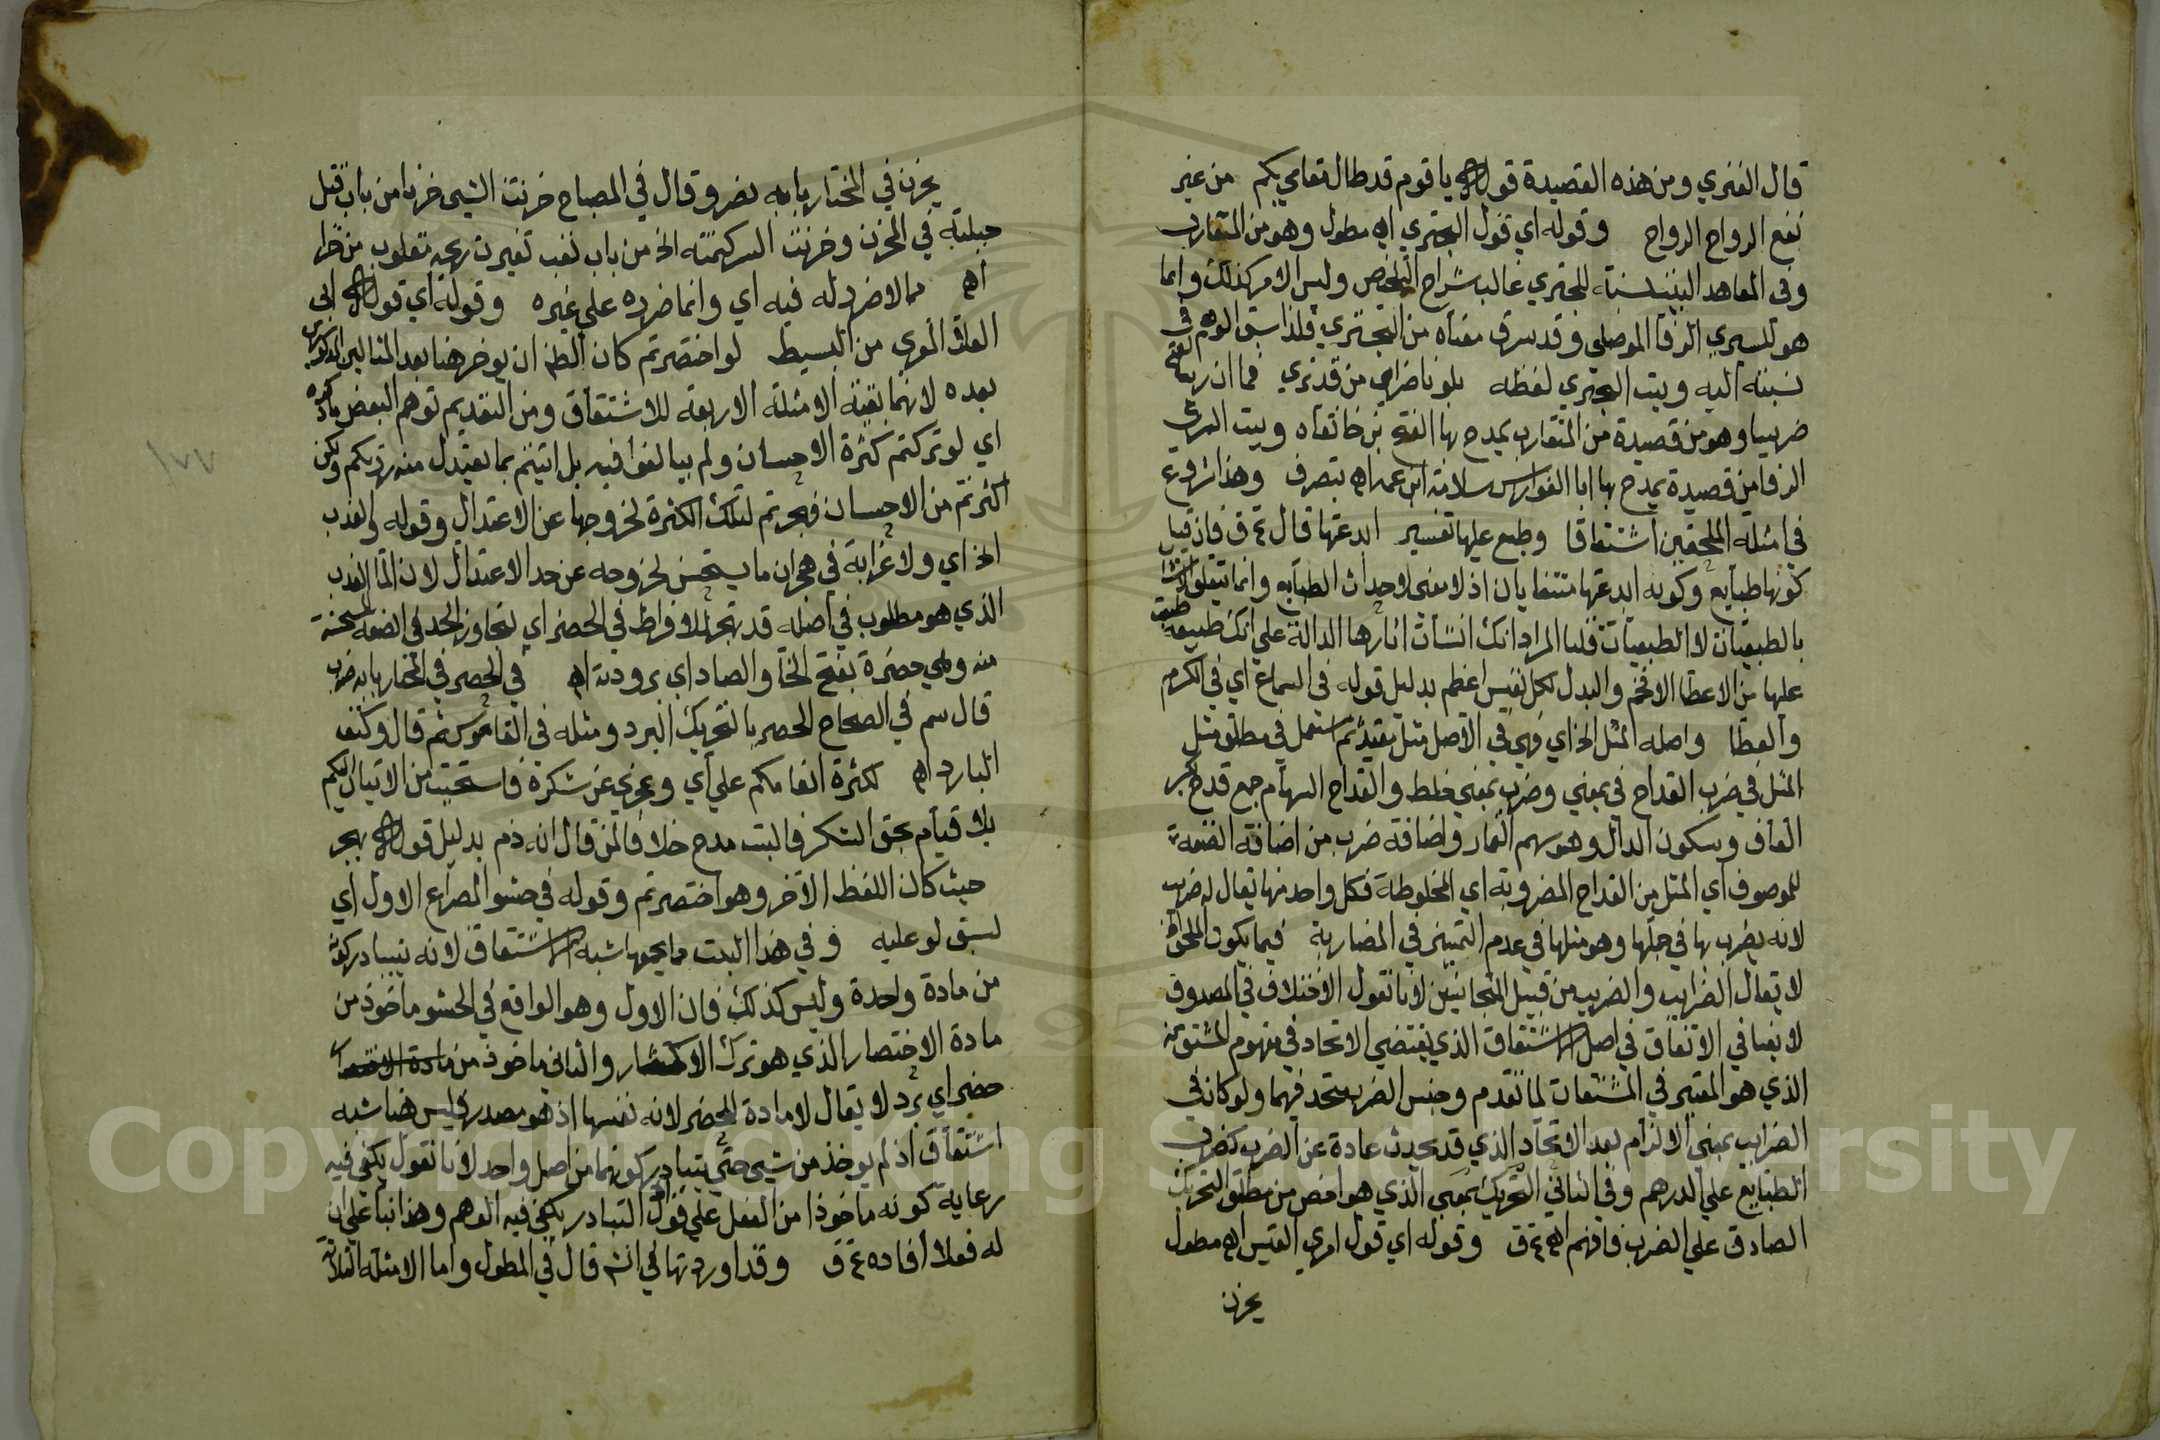 قال الفنري ومن هذه القصيدة قوله يا قوم قد طال مقامي بكم من غير
نفع الرواح الرواح وقوله اي قول البحتري اه مطول وهو من المتقارب
وفي المعاهد البيت نسبته للبحتري غالب شراح التلخيص وليس الامر كذلك وانما
هو للسري الرفا الموصلي وقد سرق معناه من البحتري فلذا سبق الوهم في
نسبته اليه وبيت البحتري لفظه بلونا ضرايب من قد نري فما ان رايت
ضريبا وهو من قصيدة من المتقارب يمدح بها الفتح بن خاقان وبيت السري
الرفا من قصيدة يمدح بها ابا الفوارس سلامة ابن اه بتصرف وهذا شروع
في امثلة الملحقين اشتقاقا وطبع عليها تفسير ابدعتها قال ع ق فان قيل
كونها طبايع وكونه ابدعها متنافيان اذ لا معني لاحداث الطبايع وانما يتعلق
بالطبيعيات لا الطبيعيات قلنا المراد انك انشأت اثارها الدالة علي انك طبيعة
عليها من الاعطا الافخم والبدل لكل نفيس اعظم بدليل قوله في السماع اي في الكرم
والعطا واصله المثل الخ اي فهي في الاصل مثل مقيد ثم استعمل في مطلق مثل
المثل في ضرب القداح في بمعني وضرب بمعني خلط والقداح السهام جمع قدح بكسر
القاف وسكون الدال وهو سهم القمار واضافة ضرب من اضافة الصفة
للموصوف اي المثل من القداح المضروبة اي المخلوطة فكل واحد منها يقال له ضرب
لانه يضرب بها في جملتها وهو مثلها في عدم التميز في المضاربة فيما يكون الملحق
لا يقال الضرايب والضريب من قبيل المتجانسين لانا نقول الاختلاف في المصدوق
لا ينافي الاتفاق في اصل الاشتقاق الذي يقتضي الاتحاد في مفهوم المشتق منه
الذي هو المعتبر في المشتقات لما تقدم وجنس الضرب متحد فيهما ولو كان في
الضرايب بمعني الالزام بعد الاتحاد الذي قد يحدث عادة عن الضرب كضرب
الطبايع علي الدرهم وفي الثاني التحريك بمعني الذي هو اخص من مطلق التحريك
الصادق علي الضرب فافهم اه ع ق وقوله اي قول امري القيس اه مطول
يخزن
يخزن في المختار بابه نصر وقال في المصباح خزنت الشي خزنا من باب قتل
جعلته في المخزن وخزنت السر كتمته الخ من باب تعب تغيرت ريحه مقلوب من خنز
اه مما لا ضرر له فيه اي وانما ضرره علي غيره وقوله اي قوله ابي
العلا المعري من البسيط لو اختصرتم كان الظن ان يوخر هنا بعد المثالين المذكورين
بعده لانهما بقية الامثلة الاربعة للاشتقاق ومن التقديم توهم البعض ما ذكره
اي لو تركتم كثرة الاحسان ولم يبالغوا فيه بل اتيتم بما يعتدل منه زرتكم ولكن
اكثرتم من الاحسان فهجرتم لتلك الكثرة لخروجها عن الاعتدال وقوله والعذب
الخ اي ولا غرابة في هجران ما يستحسن لخروجه عن حد الاعتدال لان الما العذب
الذي هو مطلوب في اصله قد يهجر للافراط في الخصر اي لتجاوز الحد في الصفة المستحسنة
منه وهي خصرة بفتح الخا والصاد اي برودته اه في الخصر في المختار بابه ضرب
قال سم في الصحاح الخصر بالتحريك البرد ومثله في القاموس ثم قال وككتف
البارد اه لكثرة انعامكم علي اي وعجزي عن شكره فاستحييت من الاتيان اليكم
بلا قيام بحق الشكر فالبيت مدح خلافا لمن قال انه ذم بدليل قوله يهجر
حيث كان اللفظ الاخر وهو اختصرتم وقوله في حشو المصراع الاول اي
لسبق لو عليه وفي هذا البيت مما يجمعها شبه الاشتقاق لانه يتبادر كونه
من مادة واحدة وليس كذلك فان الاول وهو الواقع في الحشو ماخوذ من
مادة الاختصار الذي هو ترك الاكثار والثاني ماخوذ من مادة الاختصار
خصر اي برد لا يقال لا مادة للخصر لانه نفسها اذ هو مصدر فليس هنا شبه
اشتقاق اذ لم يوخذ من شي حتي يتبادر كونهما من اصل واحد لانا نقول يكفي فيه
رعاية كونه ماخوذا من الفعل علي قول التبادر يكفي فيه الوهم وهذا بنا علي ان
له فعلا افاده ع ق وقد اوردتها في الشرح قال في المطول واما الامثلة الثلاثة